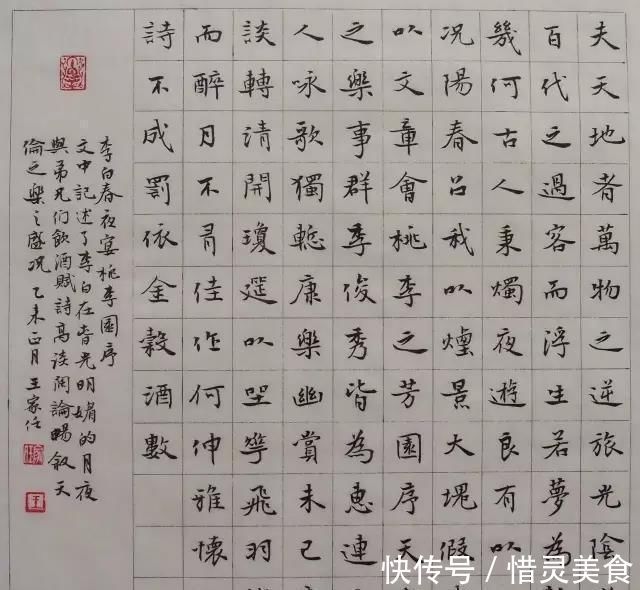 夫天地者萬物之逆旅光陰
百代之過客而浮生若夢為
幾何古人秉燭夜遊良有以
况陽春召我以煙景大塊假
以文章會桃李之芳園序天
之樂事群季俊秀皆為惠連
人咏歌獨慙康樂幽賞未已
談轉清開瓊筵以坐華飛羽
而醉月不有佳作何伸雅懷
詩不成罰依金穀酒數
李白春夜宴桃李園序
文中記述了李白在春光明媚的月夜
與弟兄们飲酒賦詩高談闊論暢叙天
倫之樂之盛况 乙未正月 王家任
快传号 / 惜灵美食